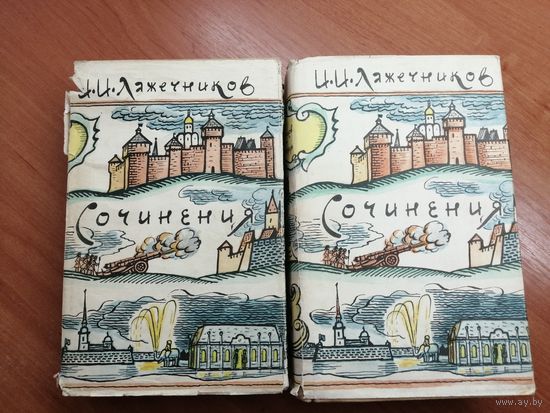 И.И.Лажечников
Сочинения
И.И.Лажечников
Сочинения
www.ay.by